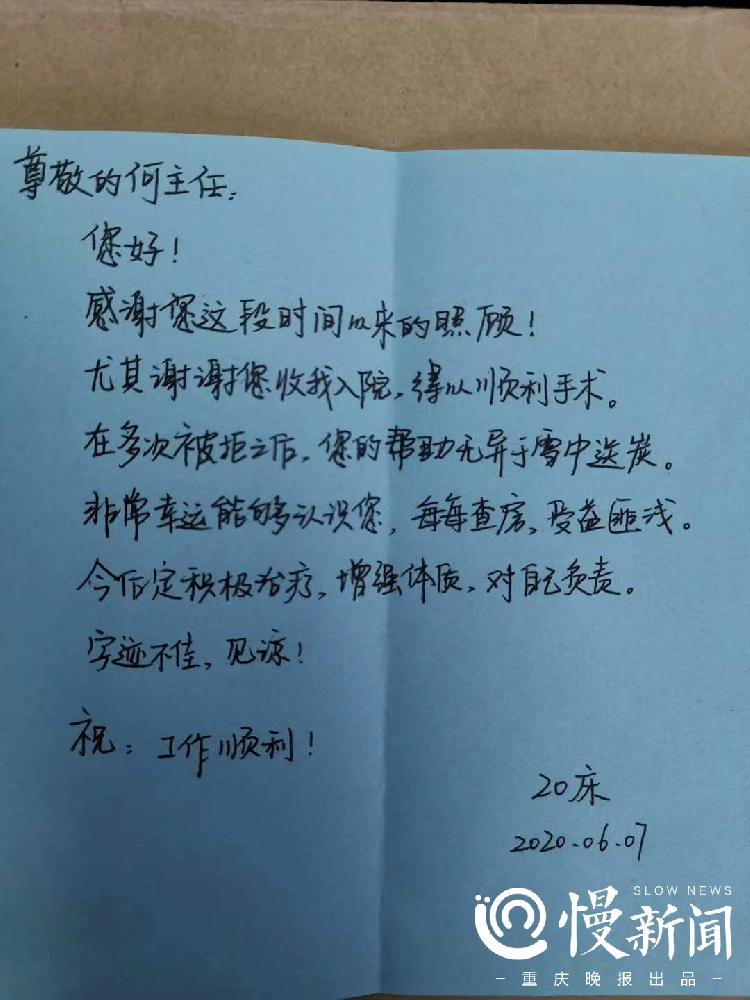 尊敬的何主任：
您好！
感谢您这段时间以来的照顾！
尤其谢谢您收我入院，得以顺利手术。
在多次被拒之后，您的帮助无异于雪中送炭。
非常幸运能够认识您，每每查房，受益匪浅。
今后定积极治疗，增强体质，对自己负责。
字迹不佳，见谅！
祝：工作顺利！
20床
2020.06.07
SLOW NEWS
慢新闻
-重庆晚报出品-